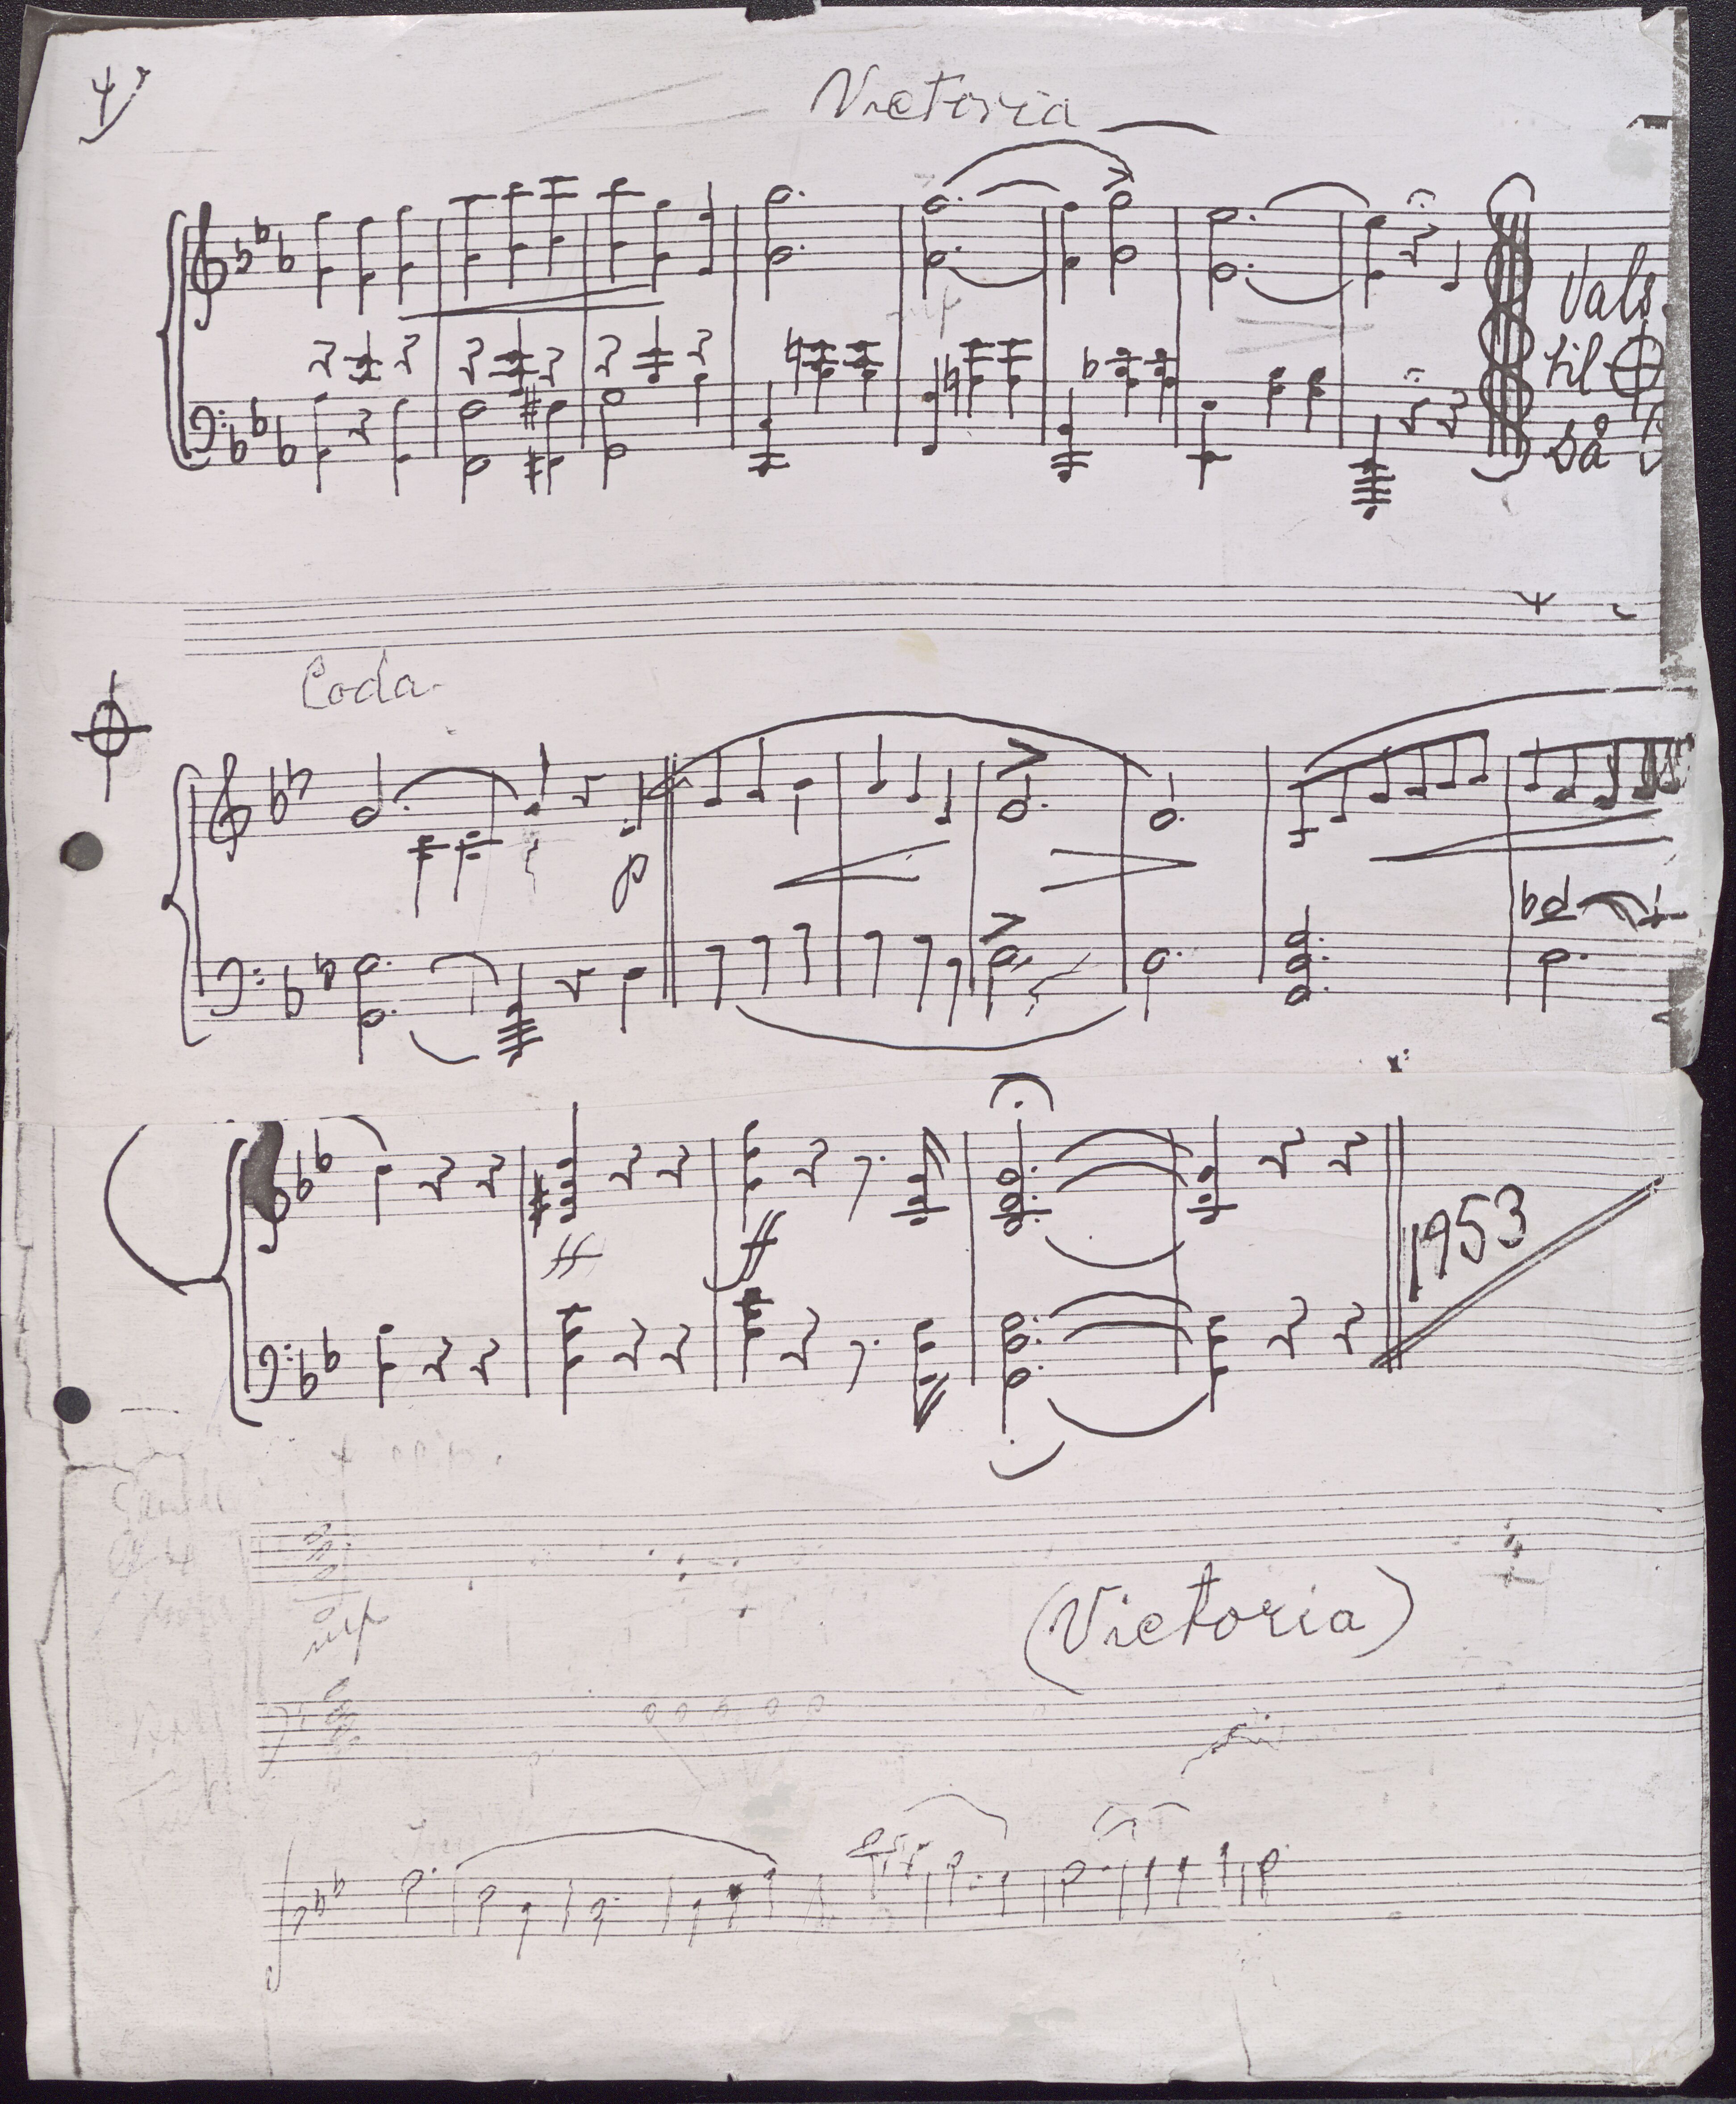 4)
Victoria
Vals.
til
så
Coda.
p
ff
ff
1953
mp
(Victoria)